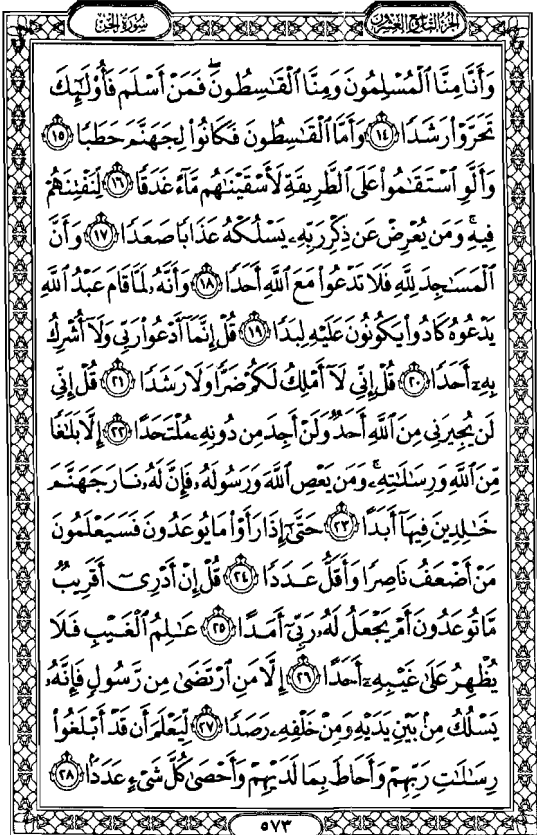 سُورَةُ الجِنّ
الجُزْءُ التَّاسِعُ وَالعِشْرُونَ
وَأَنَّا مِنَّا ٱلْمُسْلِمُونَ وَمِنَّا ٱلْقَـٰسِطُونَ ۖ فَمَنْ أَسْلَمَ فَأُو۟لَـٰٓئِكَ
تَحَرَّوْا۟ رَشَدًا ١٤ وَأَمَّا ٱلْقَـٰسِطُونَ فَكَانُوا۟ لِجَهَنَّمَ حَطَبًا ١٥
وَأَلَّوِ ٱسْتَقَـٰمُوا۟ عَلَى ٱلطَّرِيقَةِ لَأَسْقَيْنَـٰهُم مَّآءً غَدَقًا ١٦ لِّنَفْتِنَهُمْ
فِيهِ ۚ وَمَن يُعْرِضْ عَن ذِكْرِ رَبِّهِۦ يَسْلُكْهُ عَذَابًا صَعَدًا ١٧ وَأَنَّ
ٱلْمَسَـٰجِدَ لِلَّهِ فَلَا تَدْعُوا۟ مَعَ ٱللَّهِ أَحَدًا ١٨ وَأَنَّهُۥ لَمَّا قَامَ عَبْدُ ٱللَّهِ
يَدْعُوهُ كَادُوا۟ يَكُونُونَ عَلَيْهِ لِبَدًا ١٩ قُلْ إِنَّمَآ أَدْعُوا۟ رَبِّى وَلَآ أُشْرِكُ
بِهِۦٓ أَحَدًا ٢٠ قُلْ إِنِّى لَآ أَمْلِكُ لَكُمْ ضَرًّا وَلَا رَشَدًا ٢١ قُلْ إِنِّى
لَن يُجِيرَنِى مِنَ ٱللَّهِ أَحَدٌ وَلَنْ أَجِدَ مِن دُونِهِۦ مُلْتَحَدًا ٢٢ إِلَّا بَلَـٰغًا
مِّنَ ٱللَّهِ وَرِسَـٰلَـٰتِهِۦ ۚ وَمَن يَعْصِ ٱللَّهَ وَرَسُولَهُۥ فَإِنَّ لَهُۥ نَارَ جَهَنَّمَ
خَـٰلِدِينَ فِيهَآ أَبَدًا ٢٣ حَتَّىٰٓ إِذَا رَأَوْا۟ مَا يُوعَدُونَ فَسَيَعْلَمُونَ
مَنْ أَضْعَفُ نَاصِرًا وَأَقَلُّ عَدَدًا ٢٤ قُلْ إِنْ أَدْرِىٓ أَقَرِيبٌ
مَّا تُوعَدُونَ أَمْ يَجْعَلُ لَهُۥ رَبِّىٓ أَمَدًا ٢٥ عَـٰلِمُ ٱلْغَيْبِ فَلَا
يُظْهِرُ عَلَىٰ غَيْبِهِۦٓ أَحَدًا ٢٦ إِلَّا مَنِ ٱرْتَضَىٰ مِن رَّسُولٍ فَإِنَّهُۥ
يَسْلُكُ مِنۢ بَيْنِ يَدَيْهِ وَمِنْ خَلْفِهِۦ رَصَدًا ٢٧ لِّيَعْلَمَ أَن قَدْ أَبْلَغُوا۟
رِسَـٰلَـٰتِ رَبِّهِمْ وَأَحَاطَ بِمَا لَدَيْهِمْ وَأَحْصَىٰ كُلَّ شَىْءٍ عَدَدًۢا ٢٨
٥٧٣